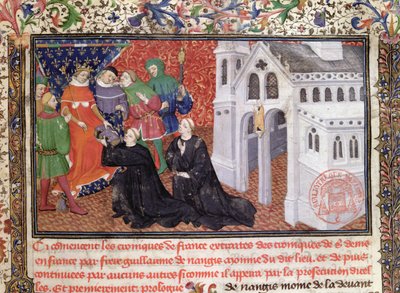 Ci cõmencent les croniques de france extraites des croniques de s. denis
en france par frere guillaume de nangis moynne du dit lieu. et de puis
continuees par aucuns autres si comme il apera par la prosecution dicel
les. Et premierement prologue
de nangis moine de la devant